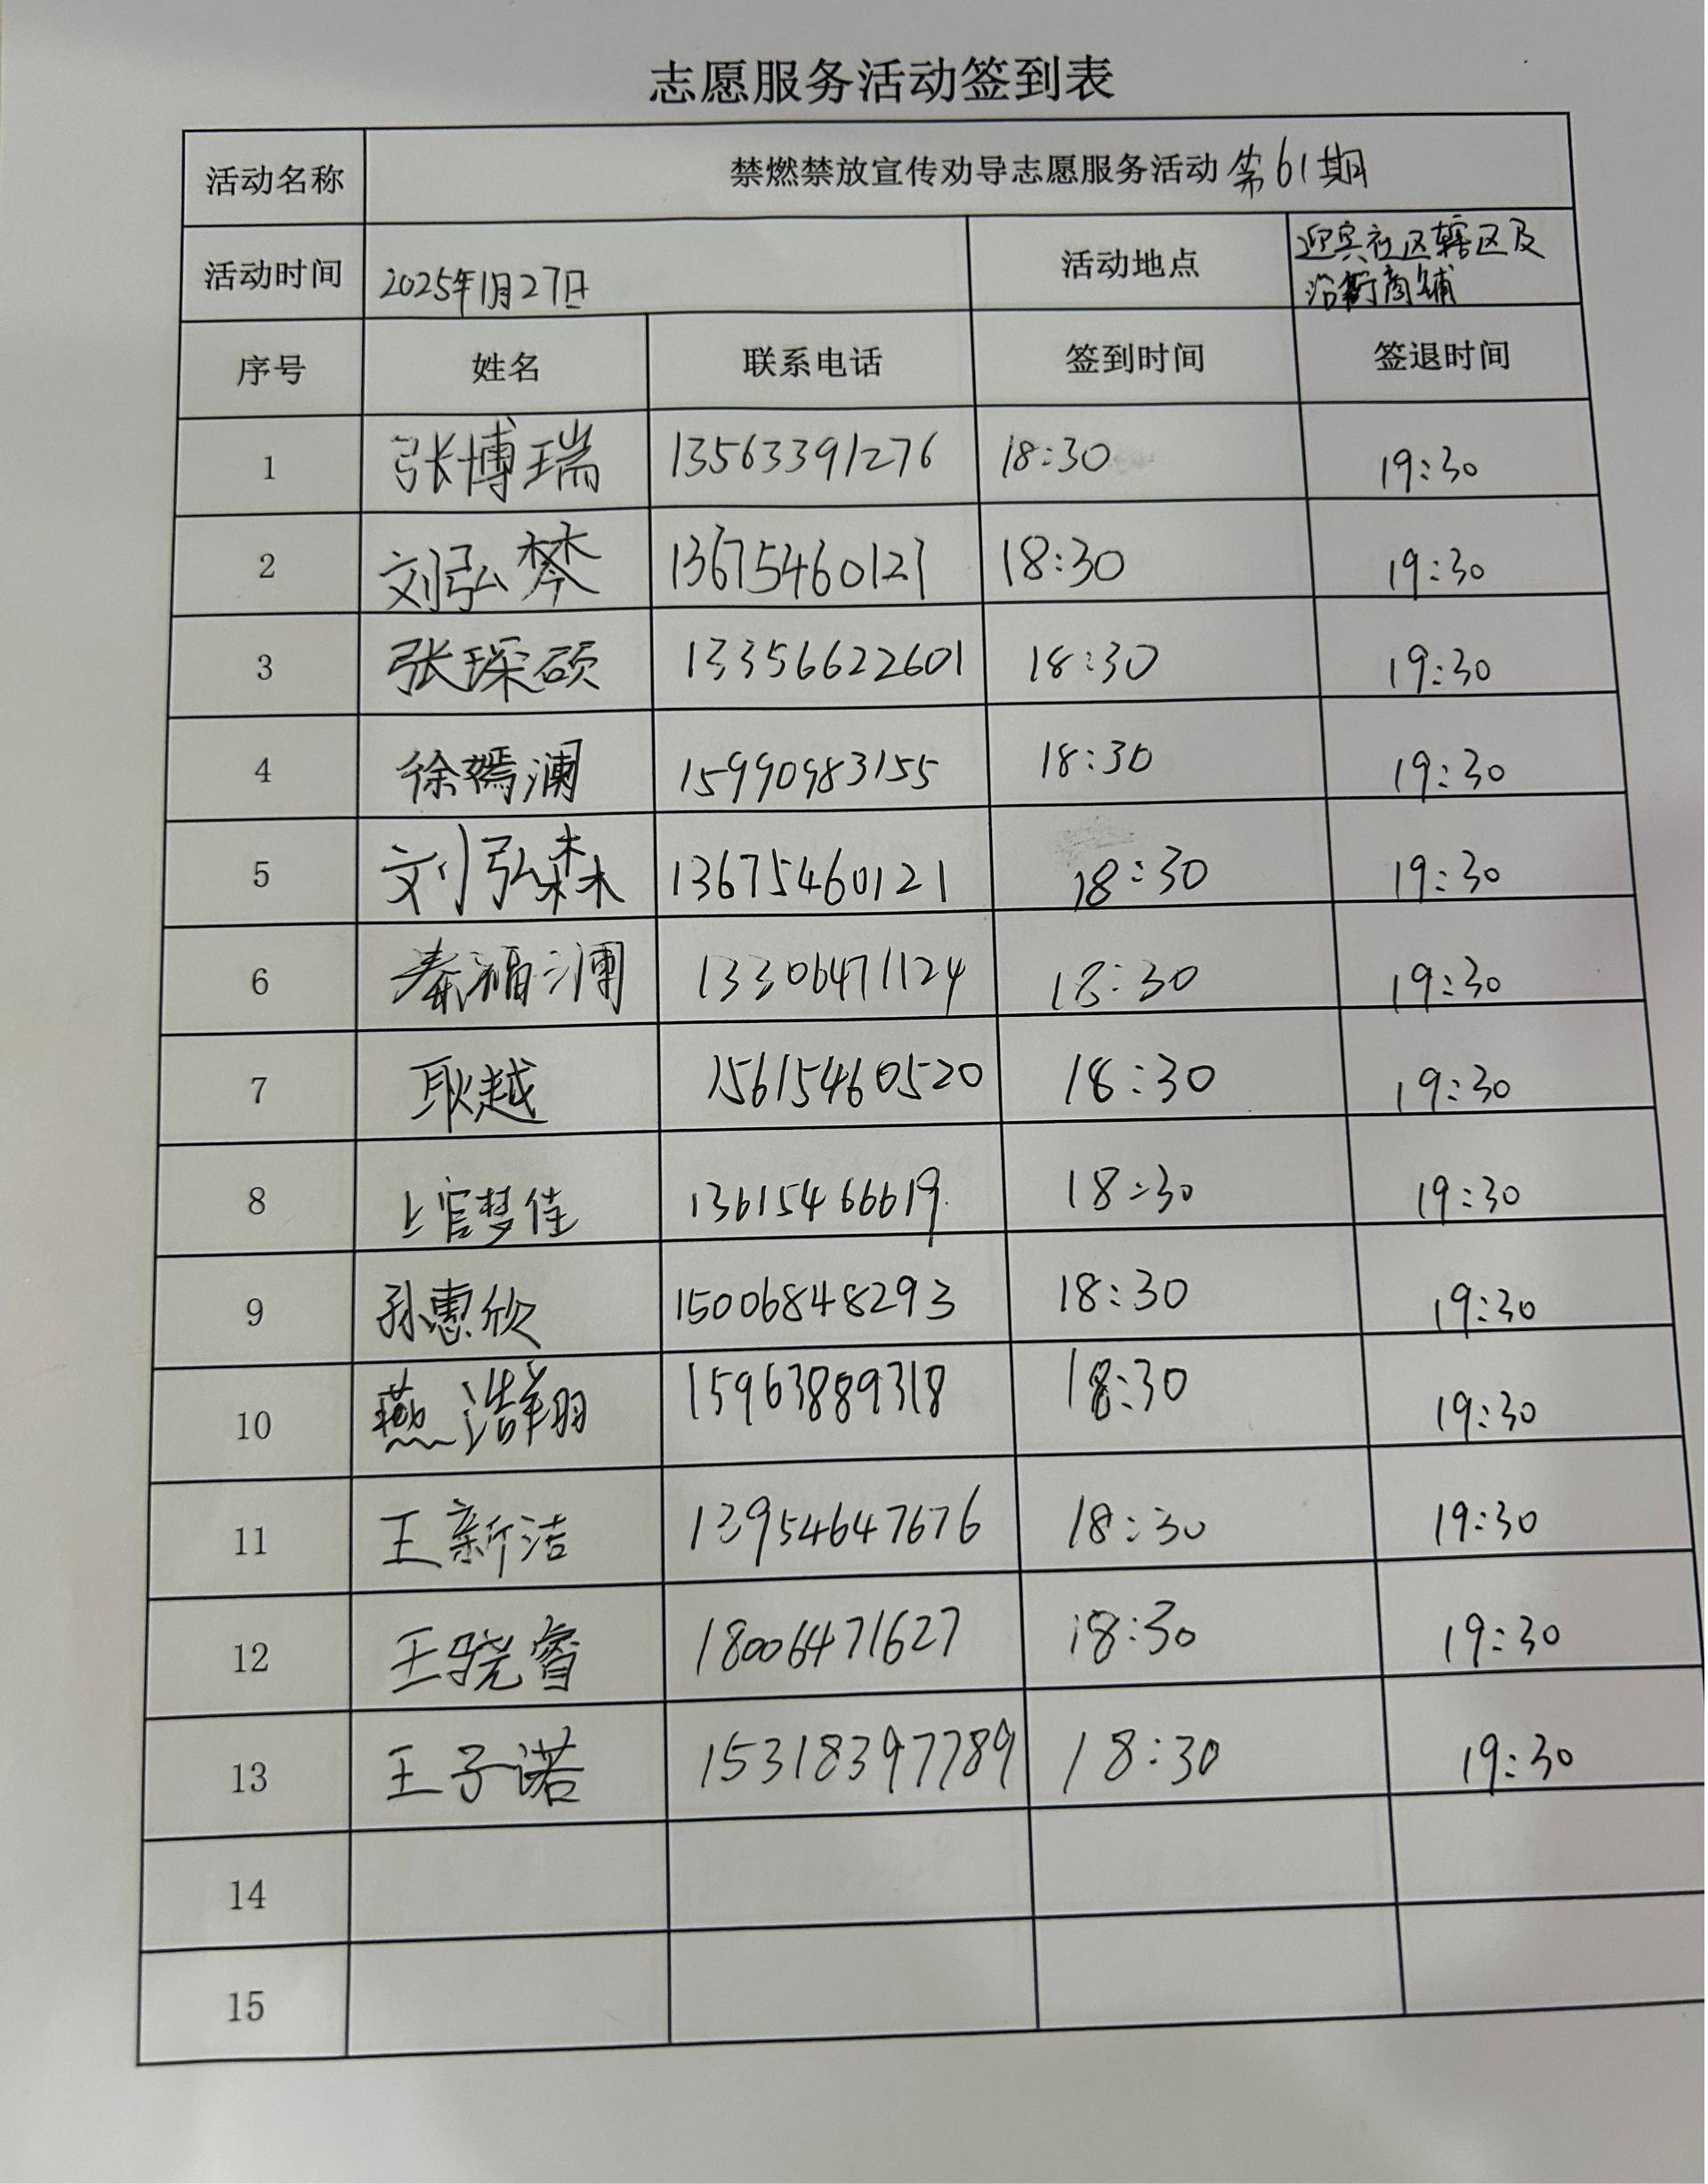 志愿服务活动签到表
活动名称 禁燃禁放宣传劝导志愿服务活动第61期
活动时间 2025年1月27日 活动地点 迎宾社区辖区及
沿街商铺
序号 姓名 联系电话 签到时间 签退时间
1 张博瑞 13563391276 18:30 19:30
2 刘弘梣 13675460121 18:30 19:30
3 张琛硕 13356622601 18:30 19:30
4 徐嫣澜 15990983155 18:30 19:30
5 刘弘森 13675460121 18:30 19:30
6 秦福澜 13306471124 18:30 19:30
7 耿越 15615460520 18:30 19:30
8 上官梦佳 13615466619 18:30 19:30
9 孙惠欣 15006848293 18:30 19:30
10 燕浩翔 15963889318 18:30 19:30
11 王新洁 13954647676 18:30 19:30
12 王骁睿 18006471627 18:30 19:30
13 王子诺 15318397789 18:30 19:30
14
15